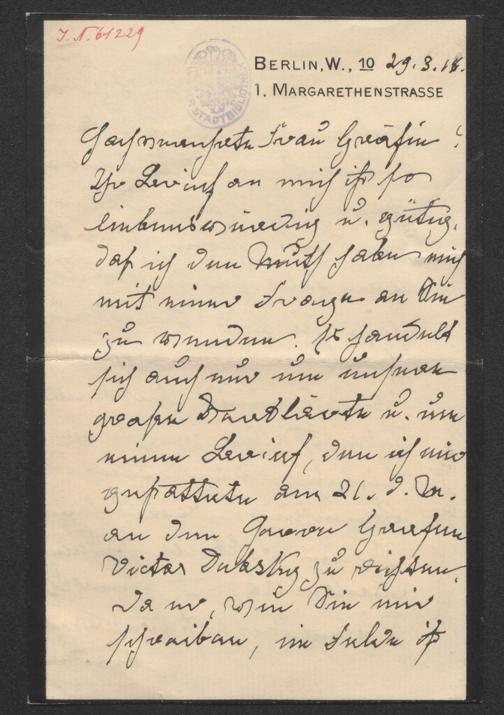 I. N. 61229
BERLIN, W., 10 29.3.18.
1. MARGARETHENSTRASSE
STADTBIBLIOTHEK
Hochverehrte Frau Gräfin!
Ihr Brief an mich ist so
liebenswürdig u. gütig,
daß ich den Muth habe mich
mit einer Frage an Sie
zu wenden. Es handelt
sich auch nur um unsere
große Dichterin u. um
einen Brief, den ich mir
gestattete am 21. d. M.
an den Herrn Grafen
Victor Dubsky zu richten.
Da er, wie Sie mir
schreiben, im Felde ist